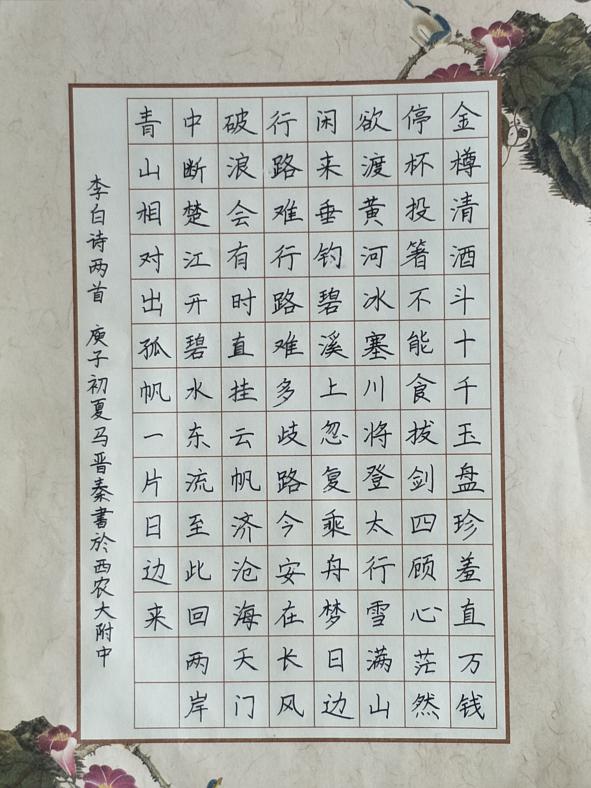 金樽清酒斗十千玉盘珍羞直万钱
停杯投箸不能食拔剑四顾心茫然
欲渡黄河冰塞川将登太行雪满山
闲来垂钓碧溪上忽复乘舟梦日边
行路难行路难多歧路今安在长风
破浪会有时直挂云帆济沧海天门
中断楚江开碧水东流至此回两岸
青山相对出孤帆一片日边来
李白诗两首 庚子初夏马晋秦書於西农大附中